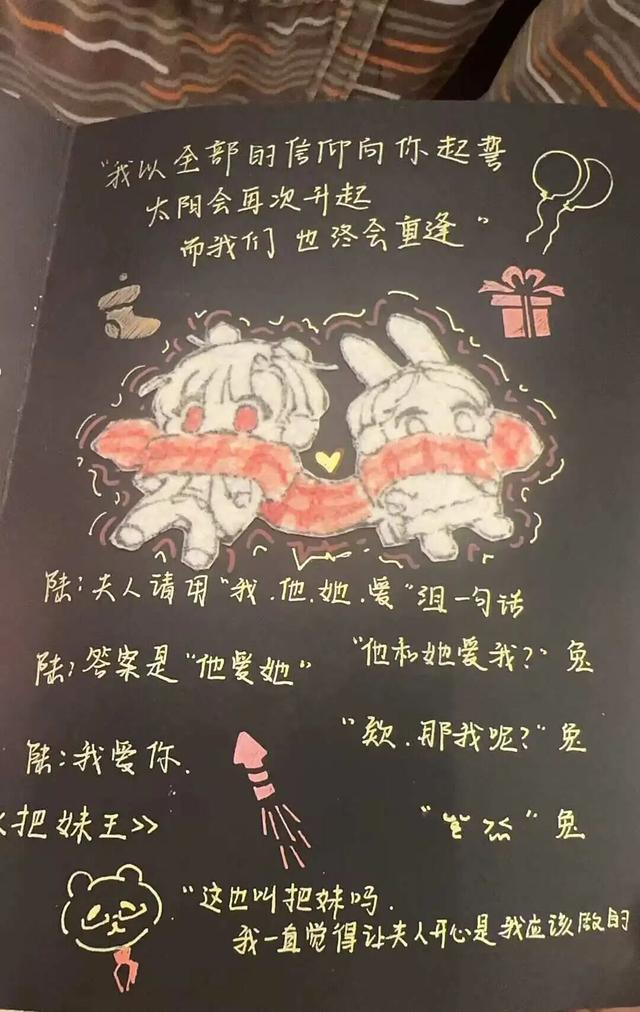 "我以全部的信仰向你起誓
太阳会再次升起
而我们也终会重逢"
陆:夫人请用"我.他.她.爱"组一句话
"他和她爱我?"兔
陆:答案是"他爱她"
"欸.那我呢?"兔
陆:我爱你.
"        "兔
《把妹王》
"这也叫把妹吗.
我一直觉得让夫人开心是我应该做的